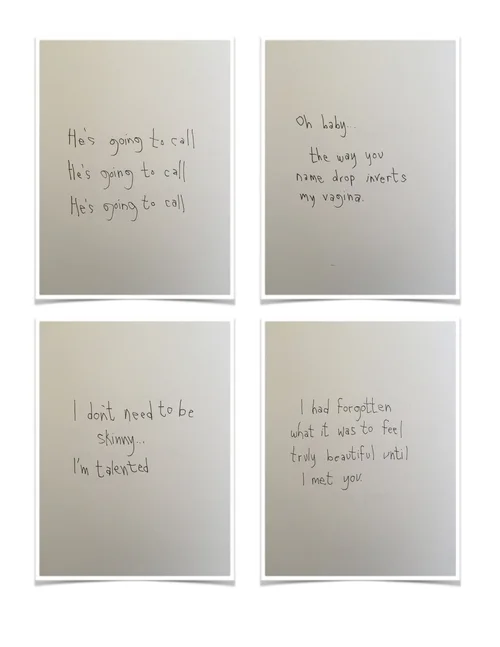 He's going to call
He's going to call
He's going to call
Oh baby...
the way you
name drop inverts
my vagina.
I don't need to be
skinny...
I'm talented
I had forgotten
what it was to feel
truly beautiful until
I met you